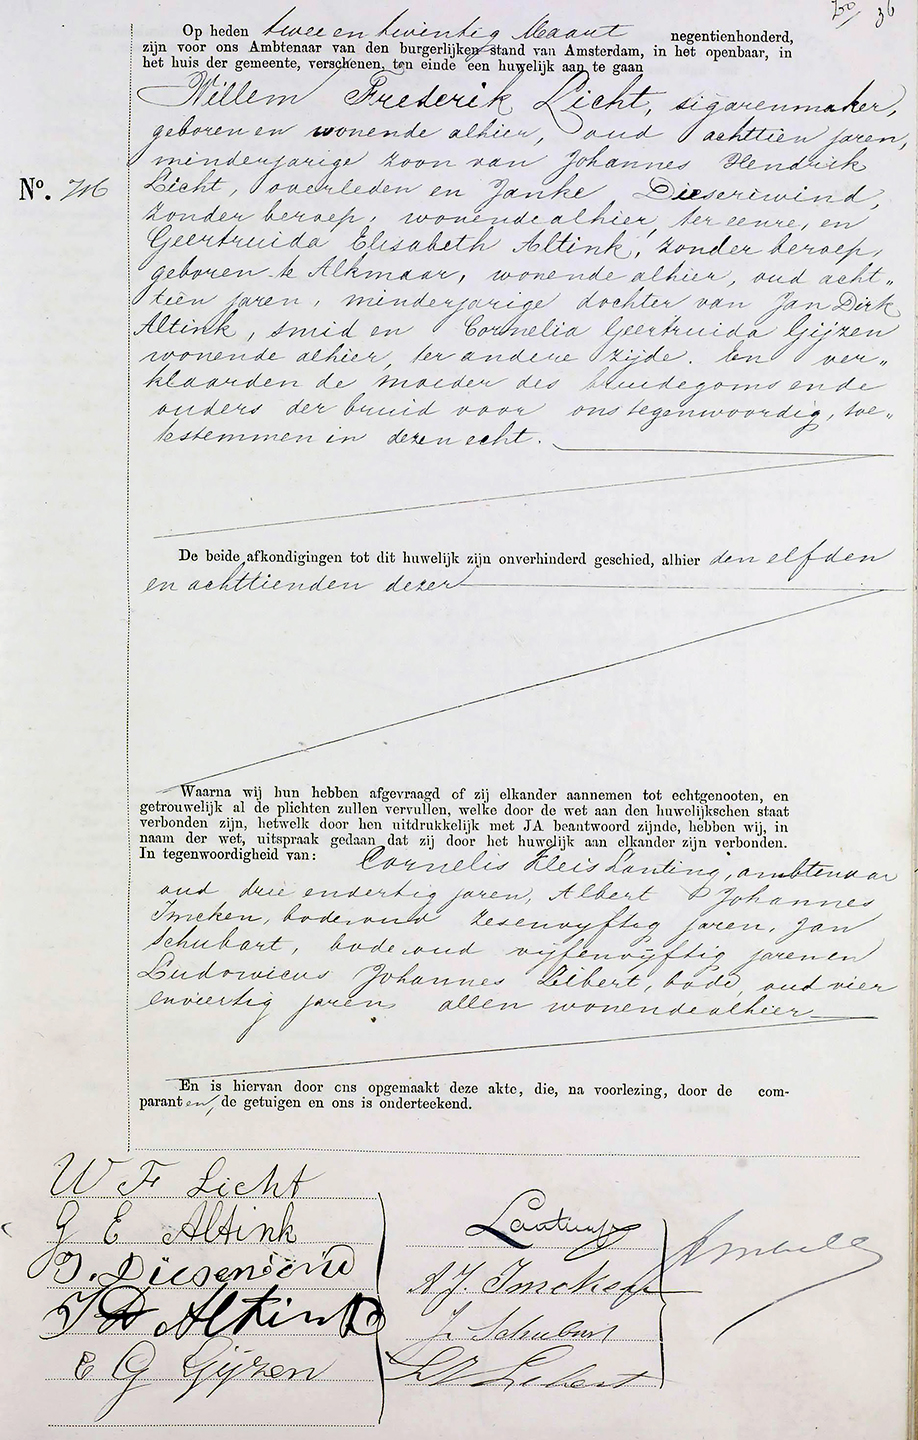 36
Op heden twee en twintig Maart negentienhonderd,
zijn voor ons Ambtenaar van den burgerlijken stand van Amsterdam, in het openbaar, in
het huis der gemeente, verschenen, ten einde een huwelijk aan te gaan
Willem Frederik Licht, sigarenmaker,
geboren en wonende alhier, oud achttien jaren,
minderjarige zoon van Johannes Hendrik
No. 716
Licht, overleden en Janke Dieseriwind,
zonder beroep, wonende alhier, ter eenre, en
Geertruida Elisabeth Altink, zonder beroep,
geboren te Alkmaar, wonende alhier, oud acht„
tien jaren, minderjarige dochter van Jan Dirk
Altink, smid en Cornelia Geertruida Gijzen
wonende alhier, ter andere zijde. En ver„
klaarden de moeder des bruidegoms en de
ouders der bruid voor ons tegenwoordig, toe„
testemmen in dezen echt.
De beide afkondigingen tot dit huwelijk zijn onverhinderd geschied, alhier den elfden
en achttienden dezer
Waarna wij hun hebben afgevraagd of zij elkander aannemen tot echtgenooten, en
getrouwelijk al de plichten zullen vervullen, welke door de wet aan den huwelijkschen staat
verbonden zijn, hetwelk door hen uitdrukkelijk met JA beantwoord zijnde, hebben wij, in
naam der wet, uitspraak gedaan dat zij door het huwelijk aan elkander zijn verbonden.
In tegenwoordigheid van: Cornelis Kleis Lanting, ambtenaar
oud drie en dertig jaren, Albert Johannes
Imcken, bode, oud zesenvyftig jaren, Jan
Schubart, bode, oud vijfenvijftig jaren en
Ludovicus Johannes Libert, bode, oud vier
enviertig jaren, allen wonende alhier
En is hiervan door ons opgemaakt deze akte, die, na voorlezing, door de com-
paranten, de getuigen en ons is onderteekend.
W F Licht
G E Altink
J. Diesenwind
J D Altink
C G Gijzen
Lanting
A J. Imcken
J. Schubart
L J Libert